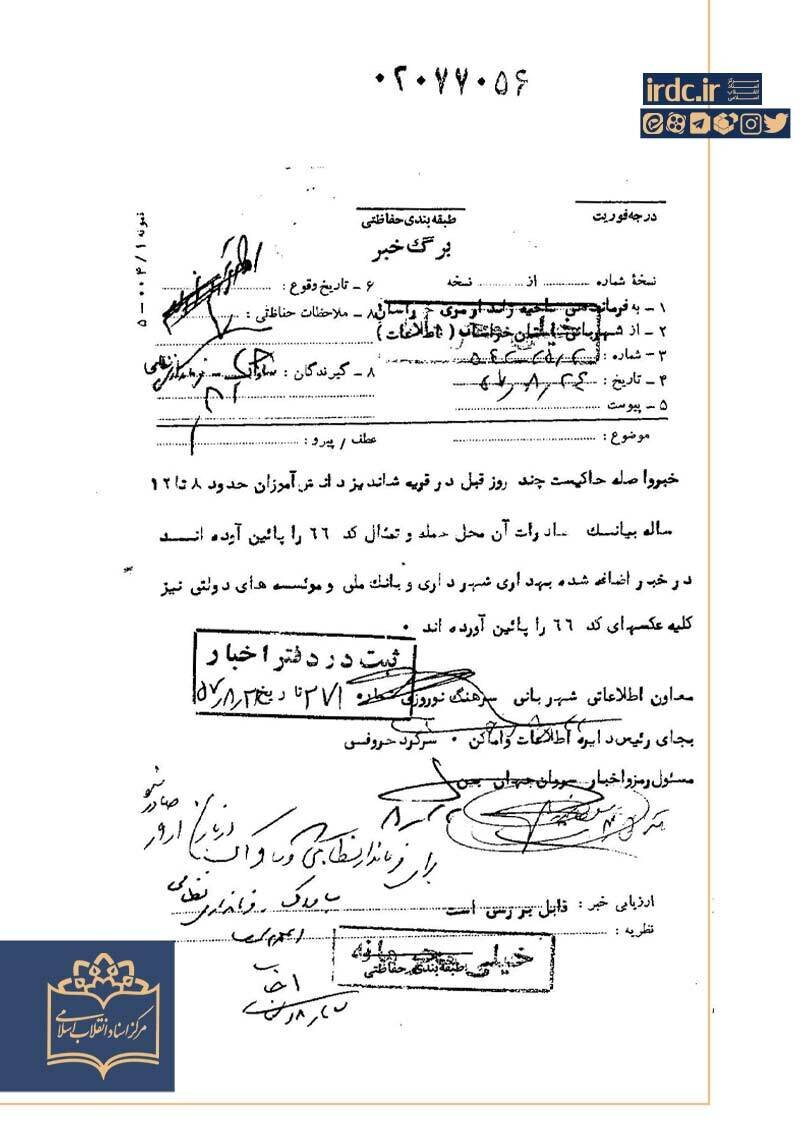 ۰۲۰۷۷۰۵۶
irdc.ir
مرکز اسناد انقلاب اسلامی
درجه فوریت
طبقه بندی حفاظتی
برگ خبر
نمونه ۱ / ۰۰۴ — ۵
نسخهٔ شماره ............ از ............ نسخه
۶ ـ تاریخ وقوع :
۱ ـ به فرماندهی ناحیه ژاندارمری خراسان
۸ ـ ملاحظات حفاظتی :
۲ ـ از شهربانی استان خراسان ( اطلاعات )
۳ ـ شماره :
۸ ـ گیرندگان :
۴ ـ تاریخ :
۵ ـ پیوست
موضوع :
عطف / پیرو :
خبرواصله حاکیست چند روز قبل در قریه شاندیز دانش آموزان حدود ۸ تا ۱۲
ساله ببانک صادرات آن محل حمله و تمثال کد ۶۶ را پائین آورده انـــد
در خبر اضافه شده بهداری شهرداری و بانک ملی و موئسسه های دولتی نیز
کلیه عکسهای کد ۶۶ را پائین آورده اند ۰
ثبت در دفتر اخبار
شماره ۲۷۱ تاریخ ۵۷٫۸٫۲۸
معاون اطلاعاتی شهربانی سرهنگ نوروزی
بجای رئیس دایره اطلاعات واماکن ۰ سرگرد حروفی
مسئول رمزواخبار سروان جهان بین
صادر شو
برای فرماندار نظامی و ساواک
ارزیابی خبر : قابل بررسی است
ساواک ـ فرمانداری نظامی
نظریه :
خیلی محرمانه
طبقه بندی حفاظتی
مرکز اسناد انقلاب اسلامی